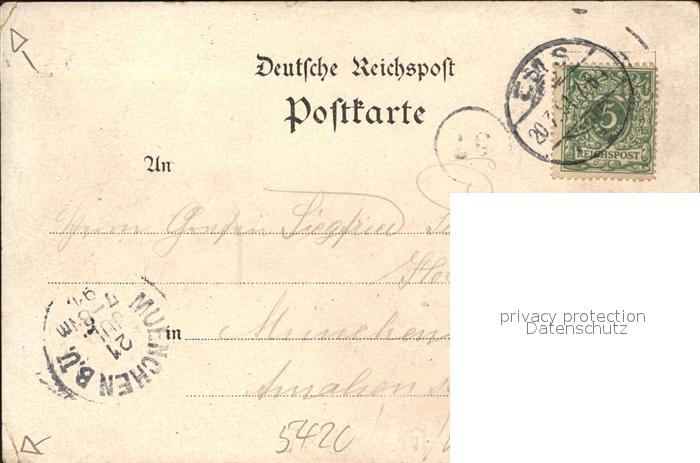 Deutsche Reichspost
Postkarte
EMS
20.7.
5
REICHSPOST
An
Herrn Grafen Siegfried
in München
Amalien
MUENCHEN B.U.
21
JUL
5420
privacy protection
Datenschutz